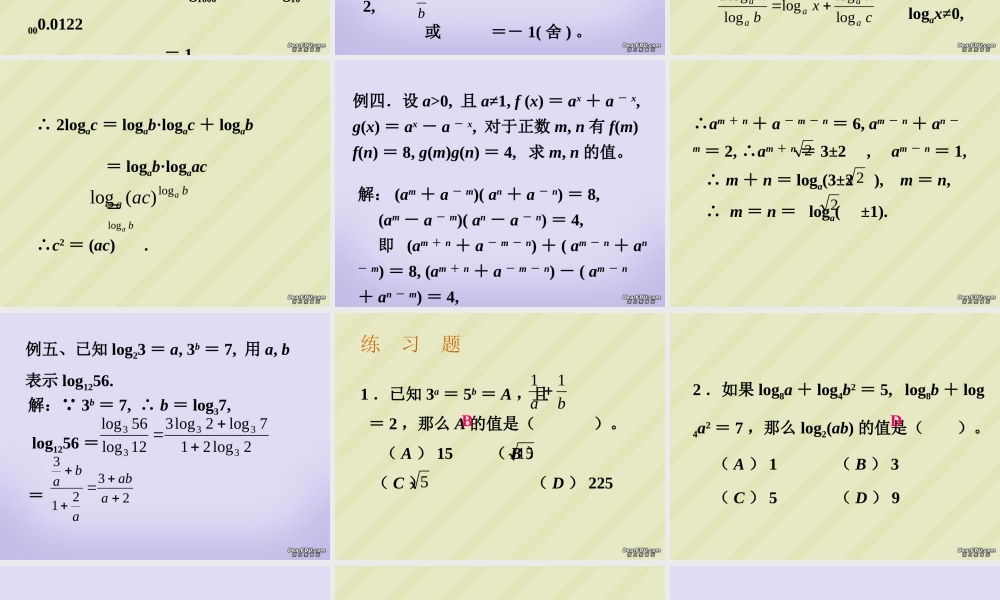 000.0122
＝ 1
2,
b
或 ＝－ 1( 舍 ) 。
log_a b
log_a x
log_a c
log_a x≠0,
∴ 2log_a c ＝ log_a b·log_a c ＋ log_a b
＝ log_a b·log_a ac
log_a (ac)^{log_a b}
＝
log_a b
∴c² ＝ (ac) .
例四．设 a>0, 且 a≠1, f (x) ＝ a^x ＋ a^{－ x},
g(x) ＝ a^x － a^{－ x}, 对于正数 m, n 有 f(m)
f(n) ＝ 8, g(m)g(n) ＝ 4, 求 m, n 的值。
解： (a^m ＋ a^{－ m})( a^n ＋ a^{－ n}) ＝ 8,
(a^m － a^{－ m})( a^n － a^{－ n}) ＝ 4,
即 (a^{m ＋ n} ＋ a^{－ m － n}) ＋ ( a^{m － n} ＋ a^{n}
^{－ m}) ＝ 8, (a^{m ＋ n} ＋ a^{－ m － n}) － ( a^{m － n}
＋ a^{n － m}) ＝ 4,
∴a^{m ＋ n} ＋ a^{－ m － n} ＝ 6, a^{m － n} ＋ a^{n －}
^{m} ＝ 2, ∴a^{m ＋ n} ＝ 3±2√2 , a^{m － n} ＝ 1,
∴ m ＋ n ＝ log_a(3±2√2 ), m ＝ n,
∴ m ＝ n ＝ log_a(√2 ±1).
例五、已知 log₂3 ＝ a, 3^b ＝ 7, 用 a, b
表示 log₁₂56.
解：∵ 3^b ＝ 7, ∴ b ＝ log₃7,
log₁₂56 ＝ log₃ 56 / log₃ 12 = (3log₃ 2 + log₃ 7) / (1 + 2log₃ 2)
＝ (3/a + b) / (1 + 2/a) = (3 + ab) / (a + 2)
练 习 题
1 ．已知 3^a ＝ 5^b ＝ A ，且 1/a + 1/b
＝ 2 ，那么 A 的值是（ B ）。
（ A ） 15 （ B ） √15
（ C ） √5 （ D ） 225
2 ．如果 log₈a ＋ log₄b² ＝ 5, log₈b ＋ log
₄a² ＝ 7 ，那么 log₂(ab) 的值是（ D ）。
（ A ） 1 （ B ） 3
（ C ） 5 （ D ） 9